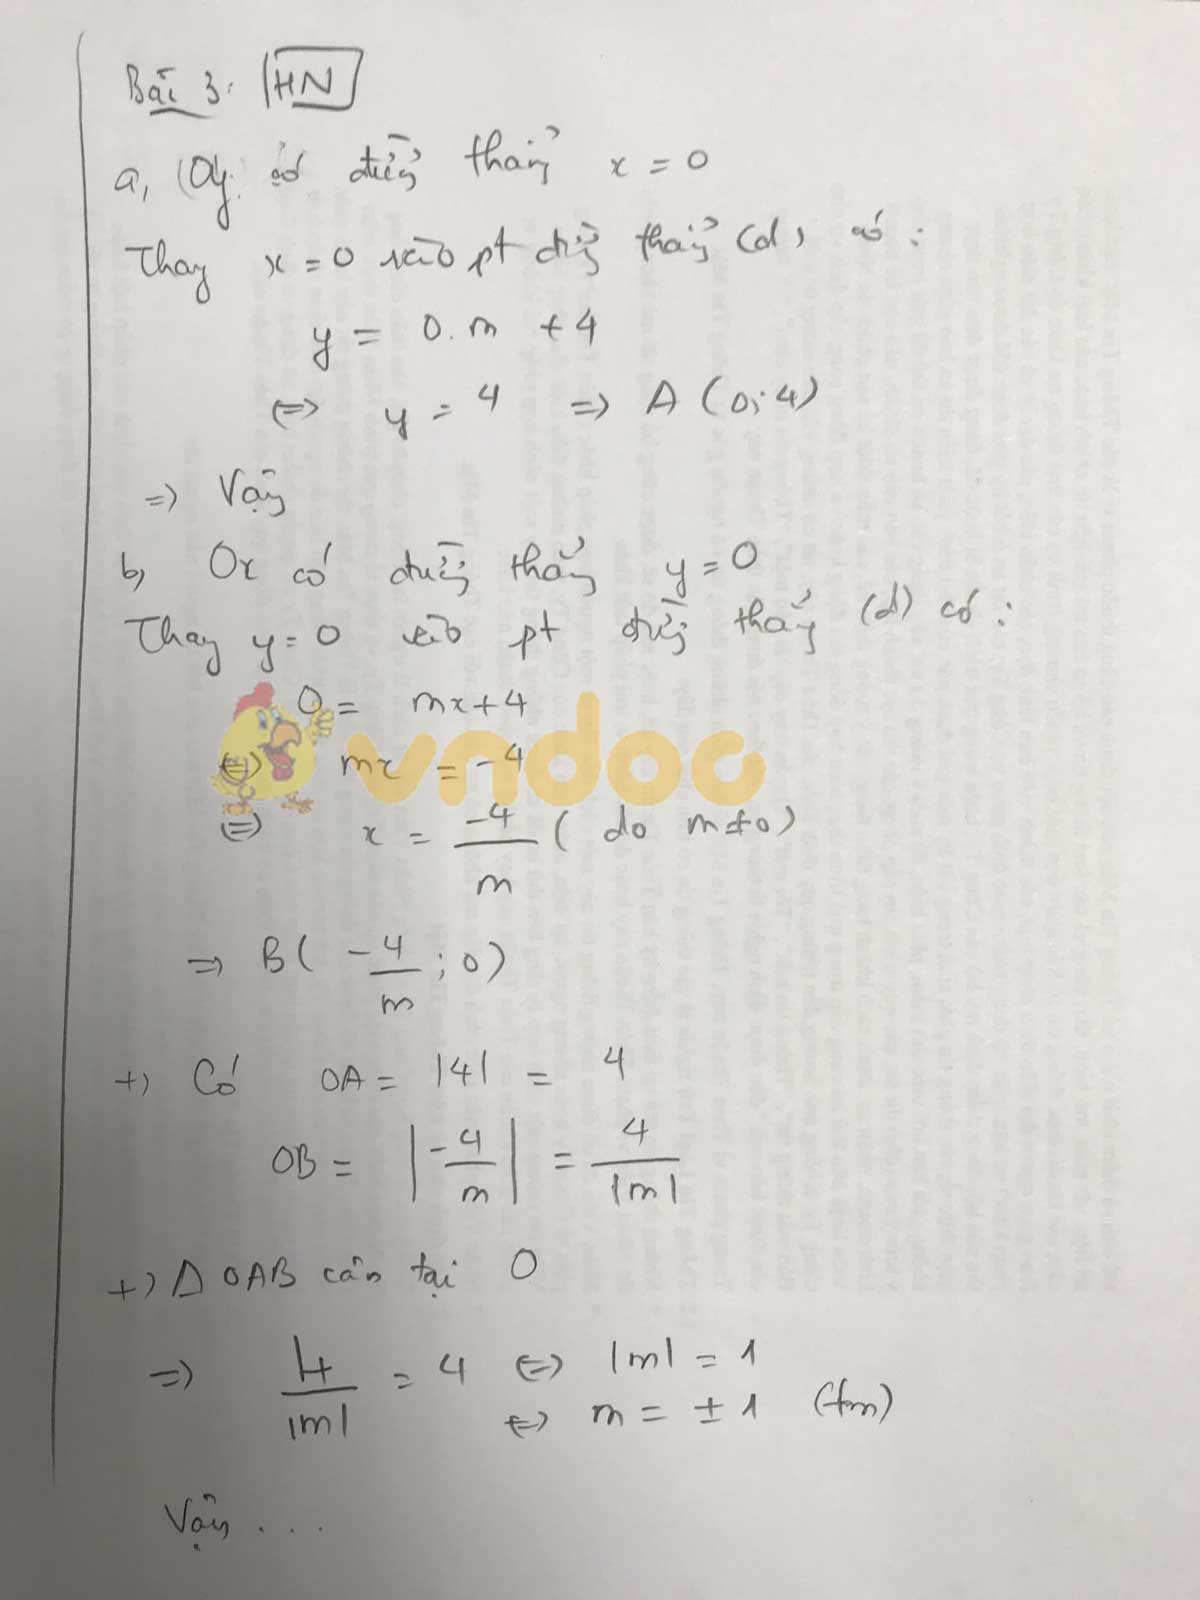 Bài 3: HN
a, Oy có đường thẳng x = 0
Thay x = 0 vào pt đường thẳng (d) có :
y = 0.m + 4
⇔ y = 4 ⇒ A (0; 4)
⇒ Vậy
b, Ox có đường thẳng y = 0
Thay y = 0 vào pt đường thẳng (d) có :
0 = mx + 4
vndoc
⇔ mx = -4
⇔ x = -4/m ( do m ≠ 0)
⇒ B( -4/m ; 0)
+) Có OA = |4| = 4
OB = |-4/m| = 4/|m|
+) Δ OAB cân tại O
⇒ 4/|m| = 4 ⇔ |m| = 1
⇔ m = ± 1 (tm)
Vậy . . .